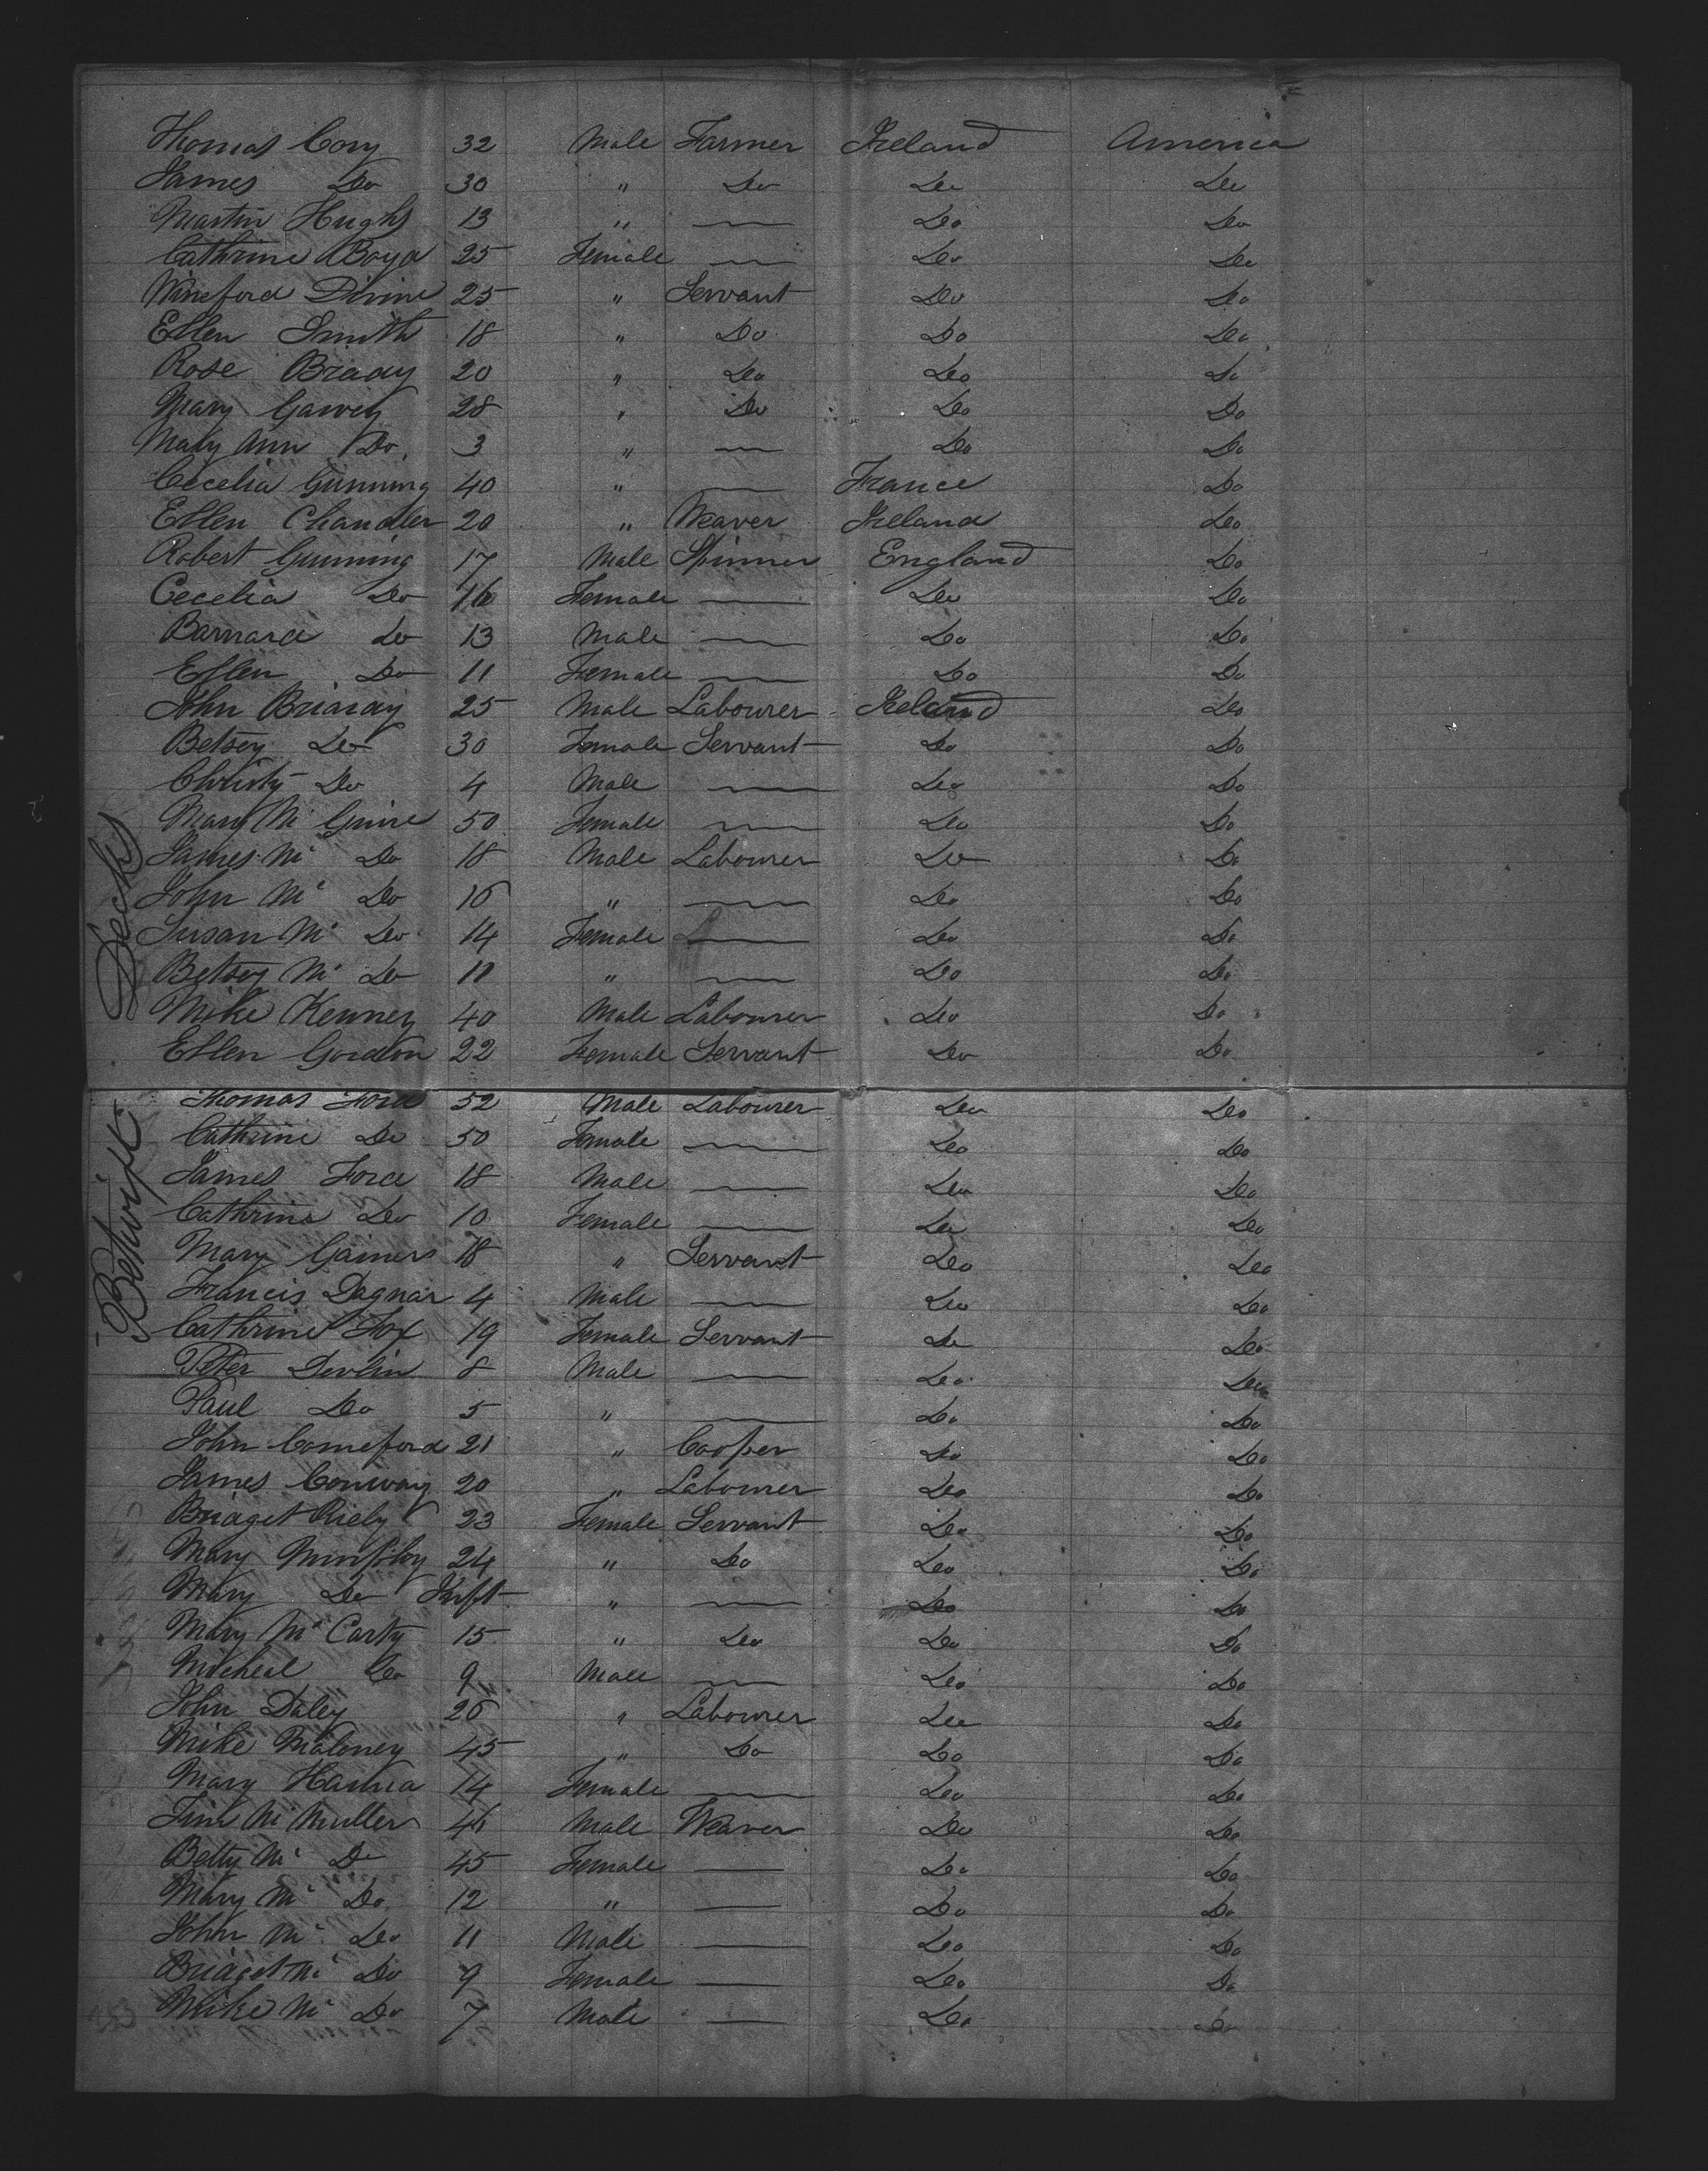 Thomas Cory 32 Male Farmer Ireland America
James Do 30 " Do Do Do
Martin Hughs 13 " — Do Do
Cathrine Boyd 25 Female — Do Do
Wineford Divine 25 " Servant Do Do
Ellen Smith 18 " Do Do Do
Rose Brady 20 " Do Do Do
Mary Garvey 28 " Do Do Do
Mary Ann Do. 3 " — Do Do
Cecelia Gunning 40 " — France Do
Ellen Chandler 20 " Weaver Ireland Do
Robert Gunning 17 Male Spinner England Do
Cecelia Do 16 Female — Do Do
Barnard Do 13 Male — Do Do
Ellen Do 11 Female — Do Do
John Briardy 25 Male Labourer Ireland Do
Betsey Do 30 Female Servant Do Do
Christy Do 4 Male — Do Do
Mary Mc Guire 50 Female — Do Do
James Mc Do 18 Male Labourer Do Do
John Mc Do 16 " — Do Do
Susan Mc Do 14 Female — Do Do
Betsey Mc Do 11 " — Do Do
Mike Kenney 40 Male Labourer Do Do
Ellen Gordon 22 Female Servant Do Do
Betwixt Decks
Thomas Ford 52 Male Labourer Do Do
Cathrine Do 50 Female — Do Do
James Ford 18 Male — Do Do
Cathrine Do 10 Female — Do Do
Mary Gainers 18 " Servant Do Do
Francis Dagnar 4 Male — Do Do
Cathrine Fox 19 Female Servant Do Do
Peter Devlin 8 Male — Do Do
Paul Do 5 " — Do Do
John Comeford 21 " Cooper Do Do
James Conway 20 " Labourer Do Do
Bridget Riely 23 Female Servant Do Do
Mary Murphy 24 " Do Do Do
Mary Do Inft " — Do Do
Mary Mc Carty 15 " Do Do Do
Micheal Do 9 Male — Do Do
John Daley 26 " Labourer Do Do
Mike Maloney 45 " Do Do Do
Mary 14 Female — Do Do
Mc Muller 46 Male Weaver Do Do
Betty Mc Do 45 Female — Do Do
Mary Mc Do 12 " — Do Do
John Mc Do 11 Male — Do Do
Bridget Mc Do 9 Female — Do Do
Mike Mc Do 7 Male — Do Do